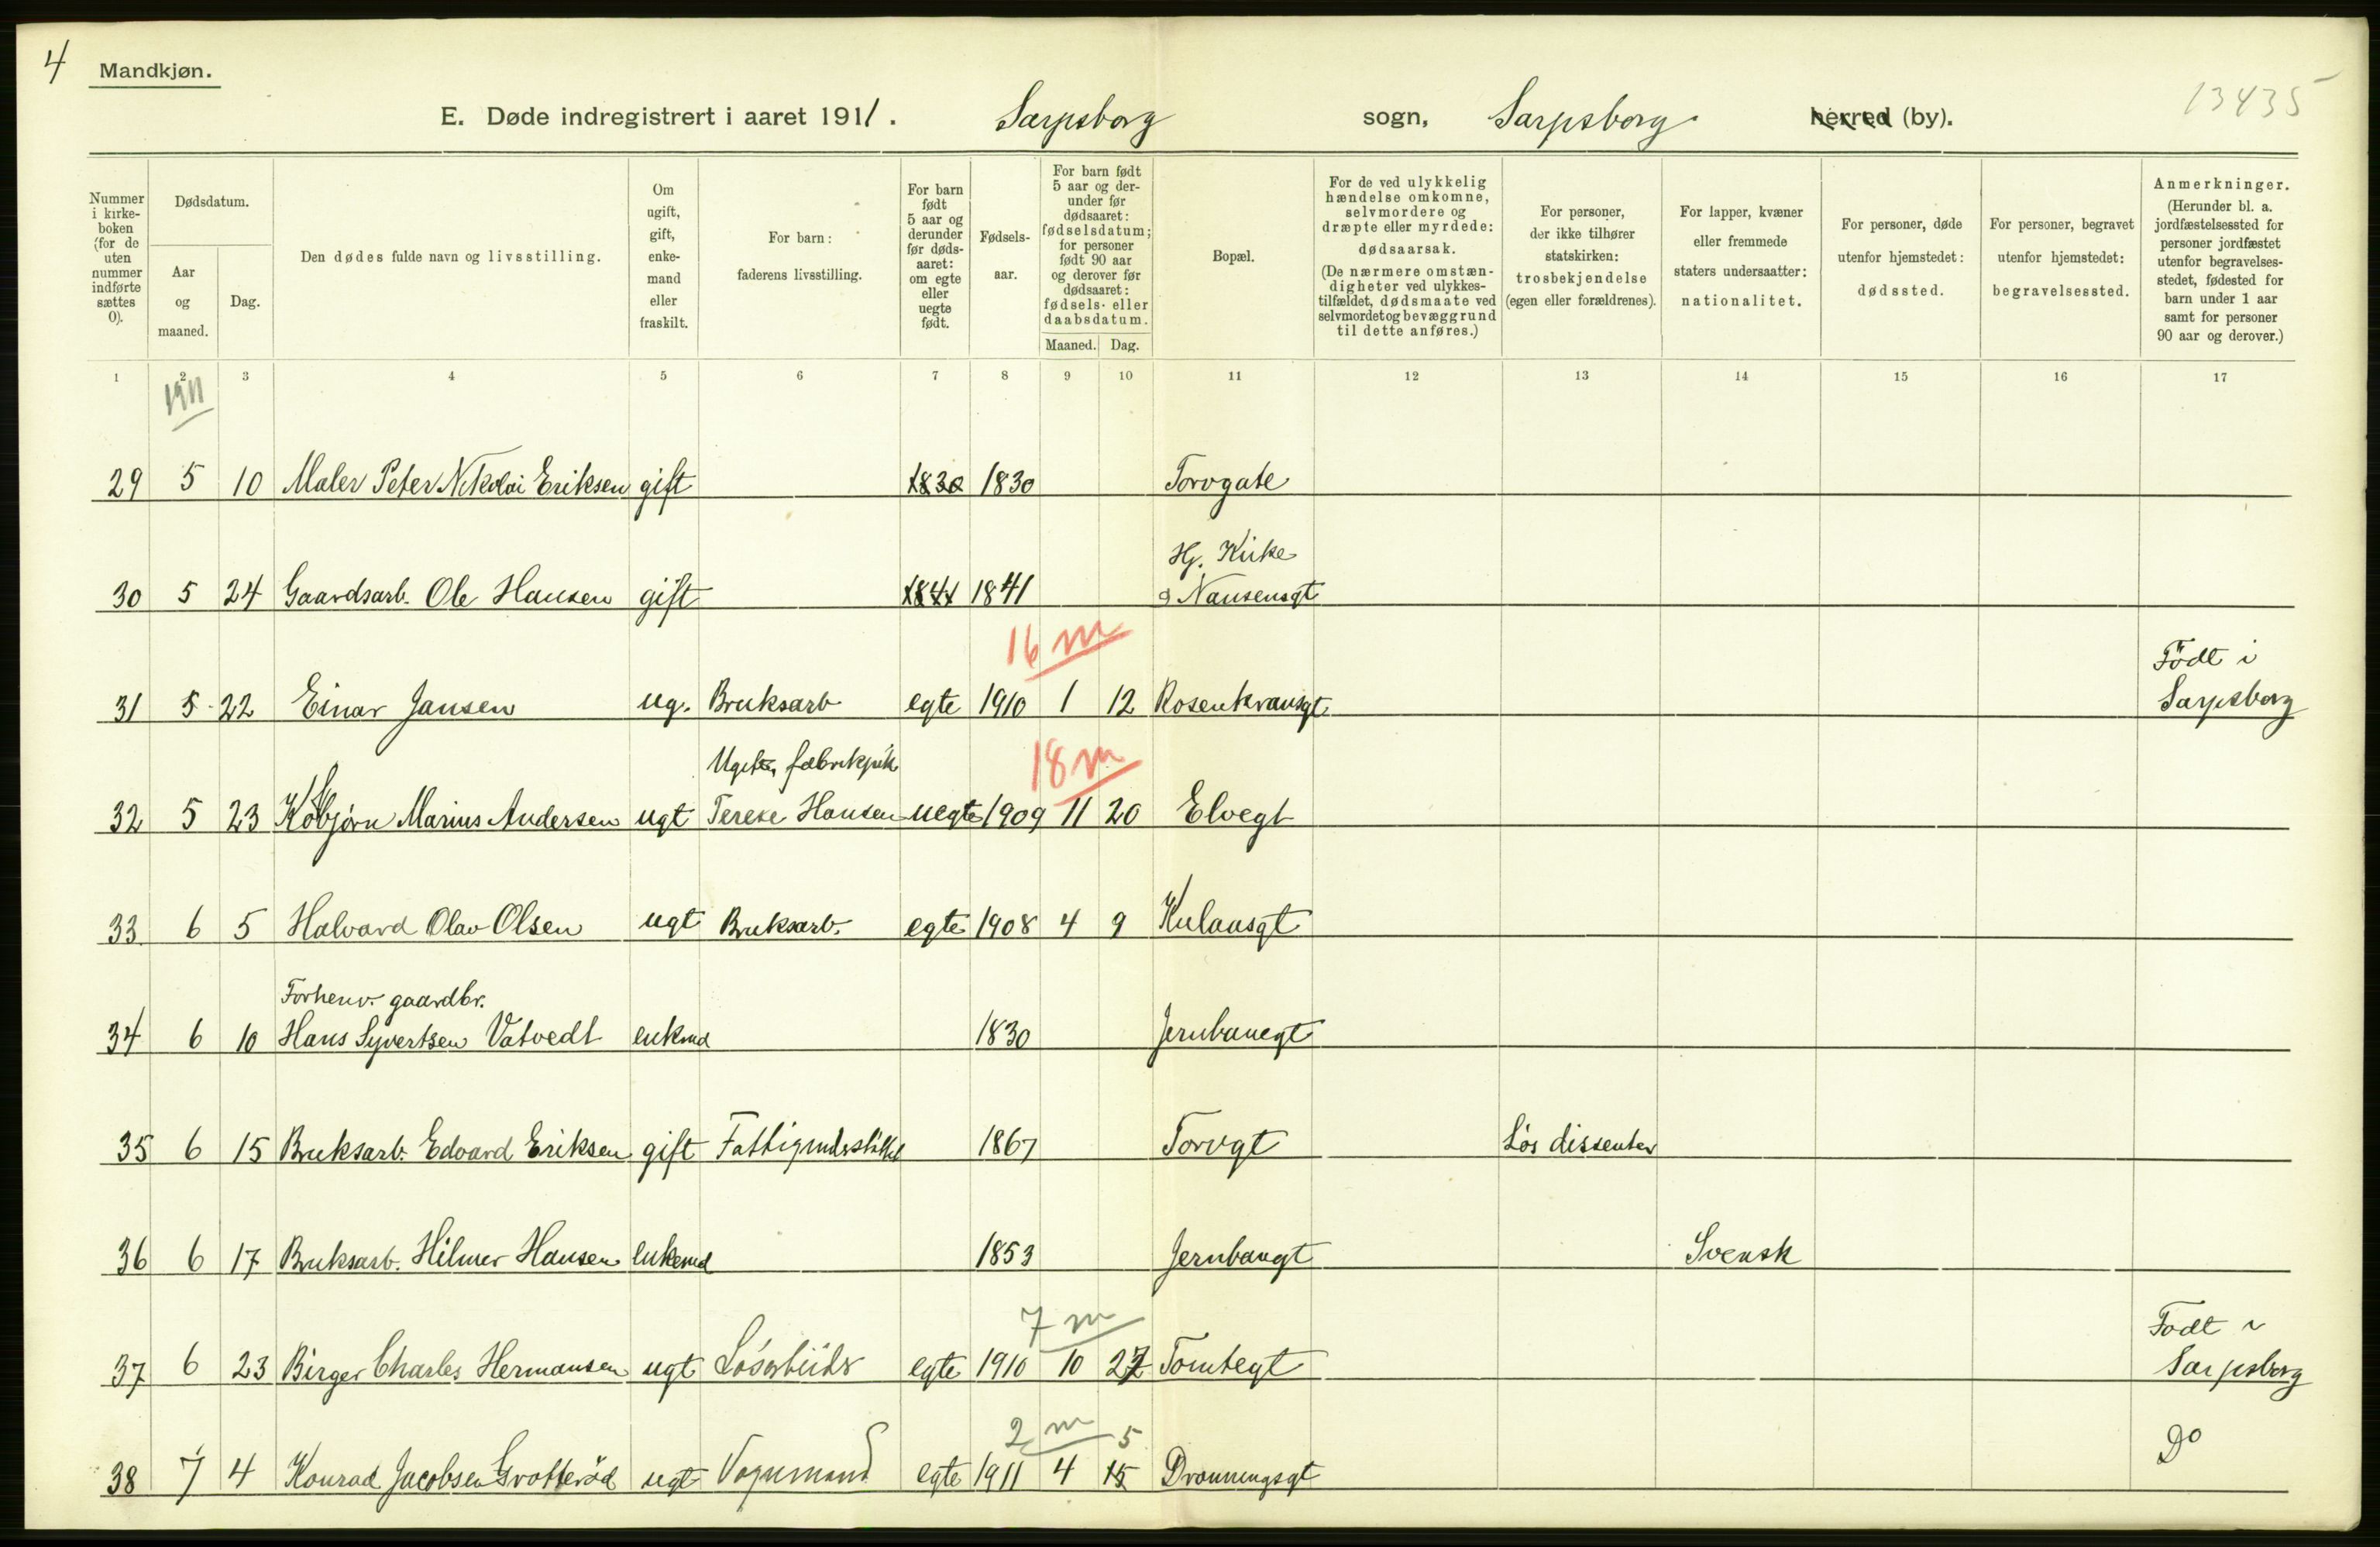 4
Mandkjøn.
13435
E. Døde indregistrert i aaret 1911. Sarpsborg sogn, Sarpsborg herred (by).
Nummer i kirke-boken (for de uten nummer indførte sættes 0).
Dødsdatum.
Aar og maaned.
Dag.
Den dødes fulde navn og livsstilling.
Om ugift, gift, enke-mand eller fraskilt.
For barn: faderens livsstilling.
For barn født 5 aar og derunder før døds-aaret: om egte eller uegte født.
Fødsels-aar.
For barn født 5 aar og der-under før dødsaaret: fødselsdatum; for personer født 90 aar og derover før dødsaaret: fødsels- eller daabsdatum.
Maaned. Dag.
Bopæl.
For de ved ulykkelig hændelse omkomne, selvmordere og dræpte eller myrdede: dødsaarsak. (De nærmere omstæn-digheter ved ulykkes-tilfældet, dødsmaate ved selvmordet og bevæggrund til dette anføres.)
For personer, der ikke tilhører statskirken: trosbekjendelse (egen eller forældrenes).
For lapper, kvæner eller fremmede staters undersaatter: nationalitet.
For personer, døde utenfor hjemstedet: dødssted.
For personer, begravet utenfor hjemstedet: begravelsessted.
Anmerkninger. (Herunder bl. a. jordfæstelsessted for personer jordfæstet utenfor begravelses-stedet, fødested for barn under 1 aar samt for personer 90 aar og derover.)
1 2 3 4 5 6 7 8 9 10 11 12 13 14 15 16 17
1911
29 5 10 Maler Peter Nikolai Eriksen gift 1830 1830 Torvgate
Hj. Kirke
30 5 24 Gaardsarb. Ole Hansen gift 1841 1841 & Nansensgt
16 m
Födt i
31 5 22 Einar Jansen ug. Bruksarb egte 1910 1 12 Rosenkransgt Sarpsborg
Ugift fabrikpik 18 m
32 5 23 Kolbjørn Marius Andersen ugt Terese Hansen uegte 1909 11 20 Elvegt
33 6 5 Halvard Olav Olsen ugt Bruksarb. egte 1908 4 9 Kulaasgt
Forhenv. gaardbr.
34 6 10 Hans Syvertsen Vatvedt enkmd 1830 Jernbanegt
35 6 15 Bruksarb. Edvard Eriksen gift 1867 Torvgt Lös dissenter
36 6 17 Bruksarb. Hilmer Hansen enkemd 1853 Jernbangt Svensk
7 m Födt i
37 6 23 Birger Charles Hermansen ugt Lösarbeider egte 1910 10 27 Tomtegt Sarpsborg
2 m 5 Do
38 7 4 Konrad Jacobsen Grotteröd ugt Vognmand egte 1911 4 15 Dronningsgt